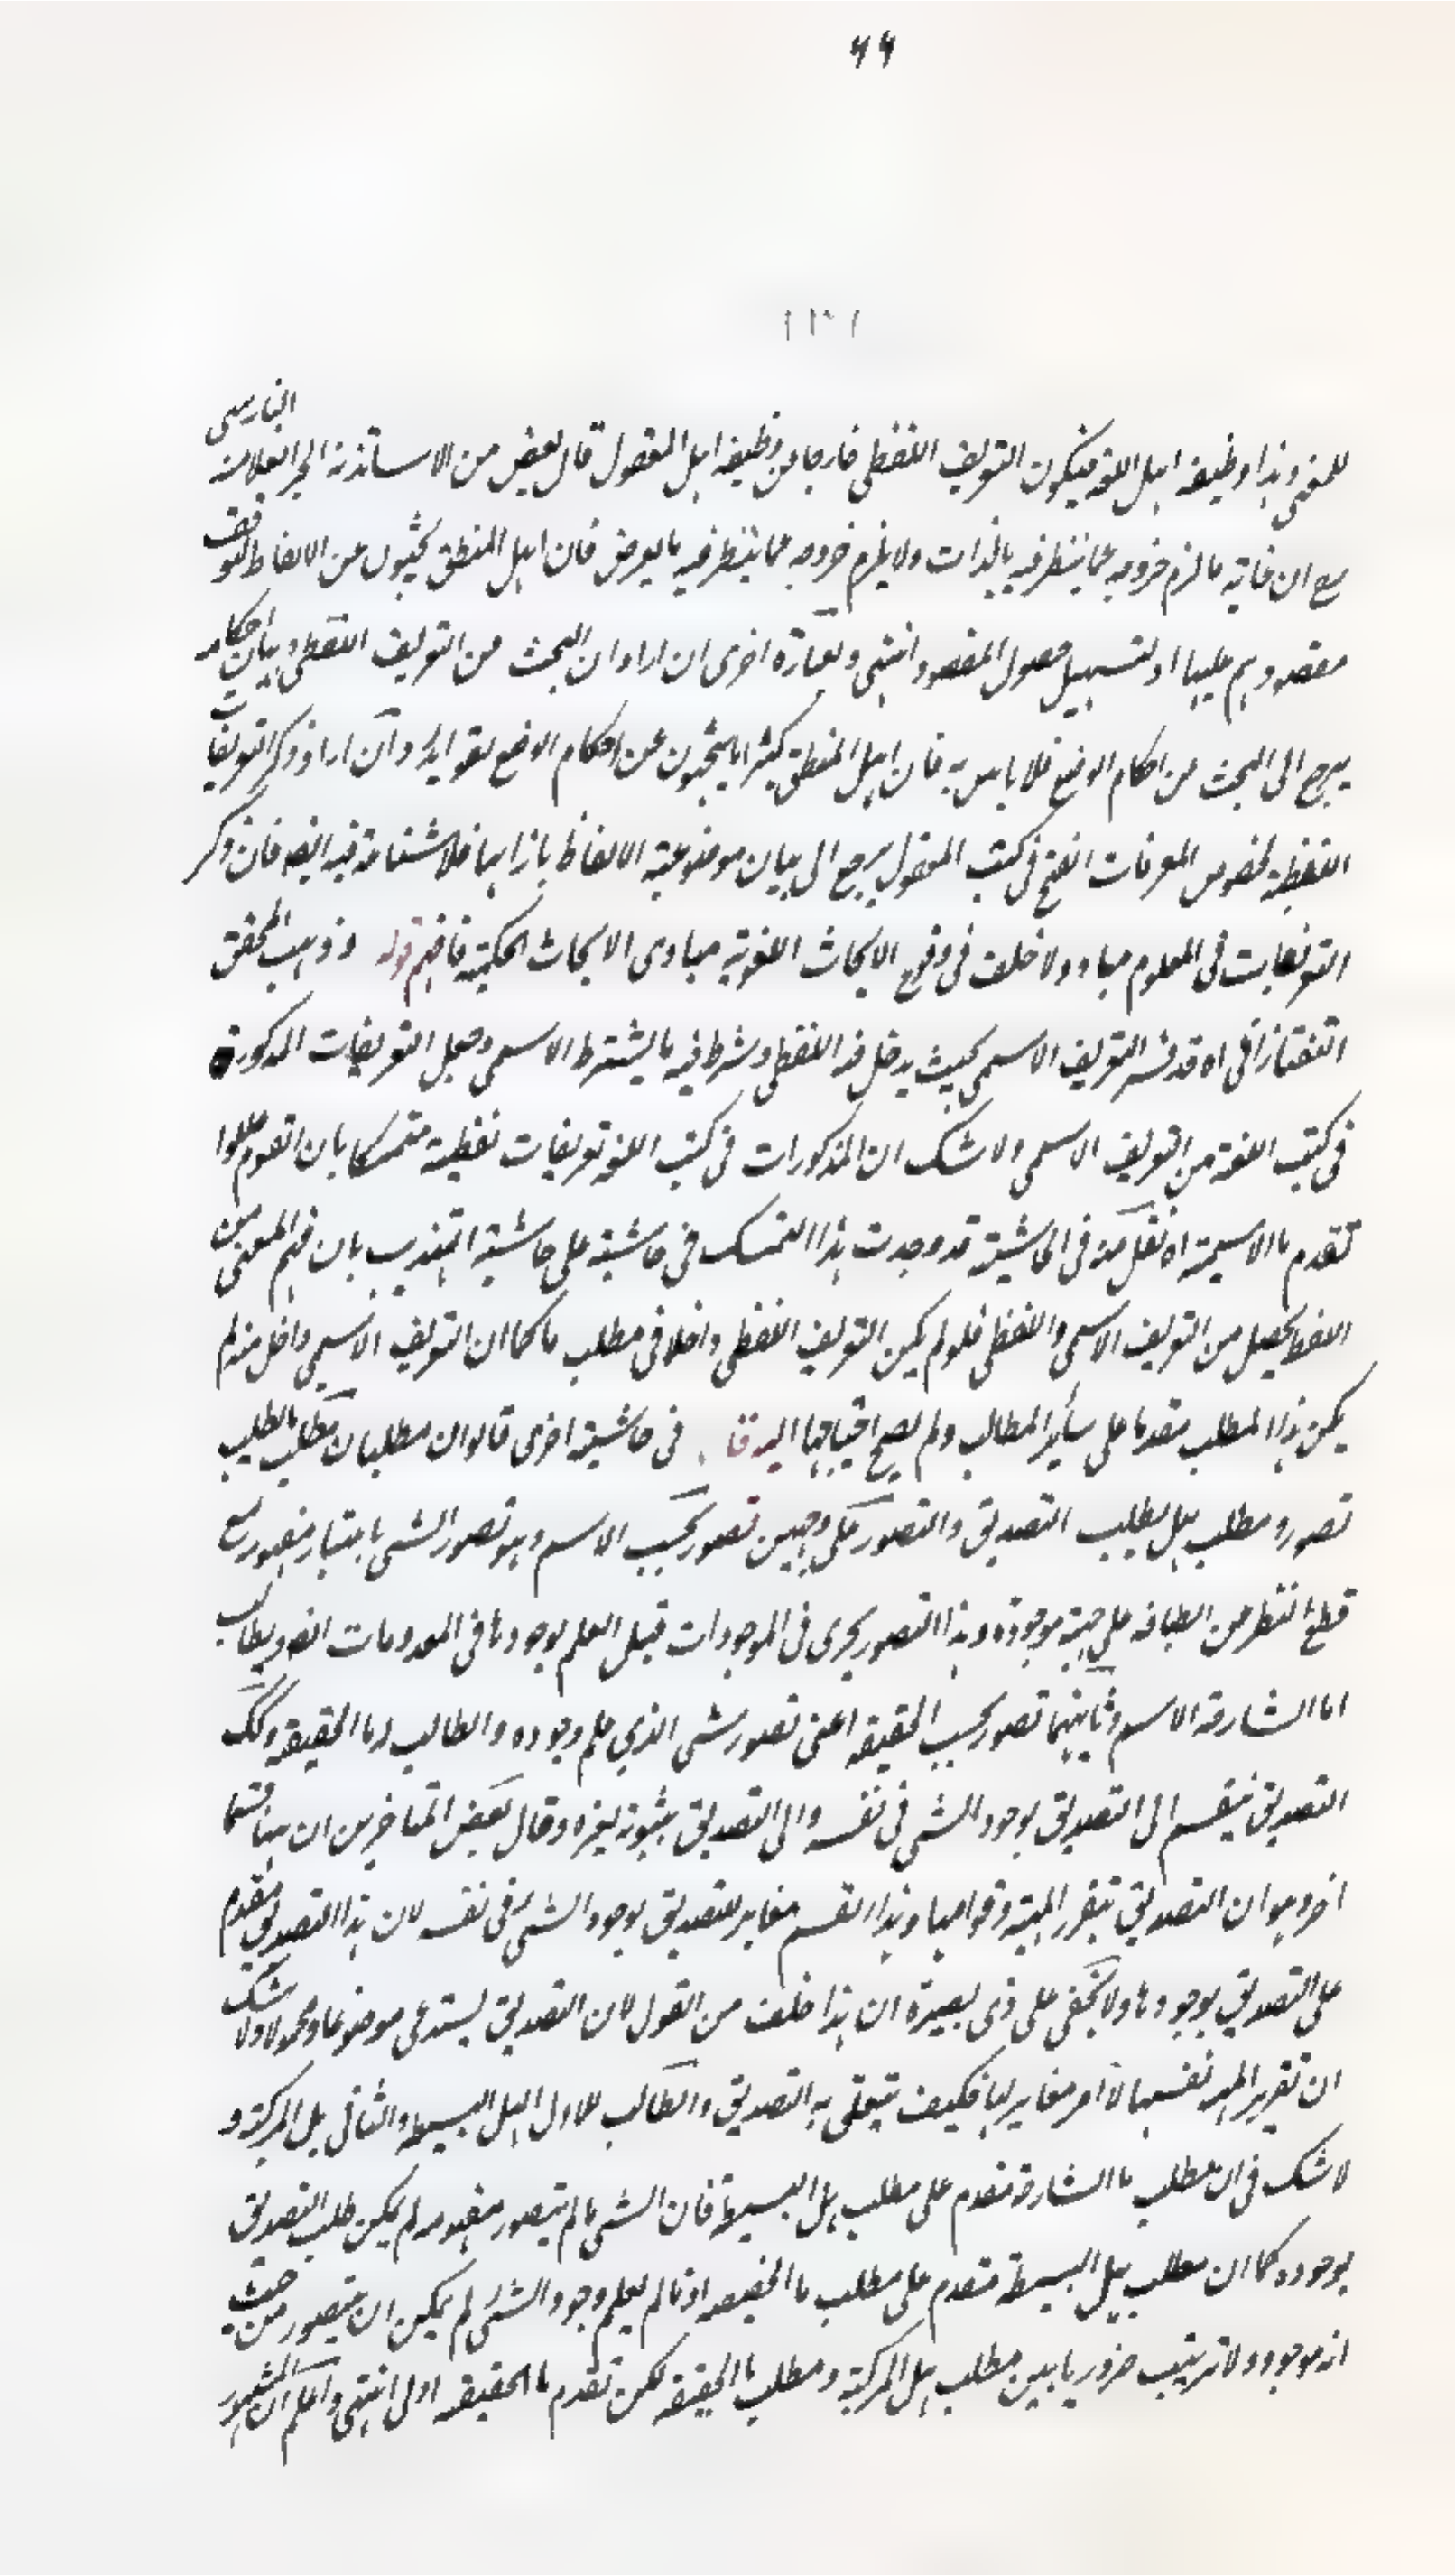 ۶۶
للمعنى وهذا وظيفة اهل اللغة فيكون التعريف اللفظى خارجا من وظيفة اهل المعقول قال بعض من الاساتذة البحر العلامة البنارسى
مع ان غايته ما لزم خروجه عما ينظر فيه بالذات ولا يلزم خروجه عما ينظر فيه بالعرض فان اهل المنطق يبحثون عن الالفاظ لتوقف
مقصودهم عليها او لتسهيل حصول المقصود انتهى وبعبارة اخرى ان اراد ان البحث من التعريف اللفظى وبيان احكامه
يرجع الى البحث من احكام الوضع فلا باس به فان اهل المنطق كثيرا ما يبحثون عن احكام الوضع لفوائد وان اراد ذكر التعريفات
اللفظية لخصوص المعرفات فى كتب المعقول يرجع الى بيان موضوعية الالفاظ بازائها فلا شناعة فيه ايضا فان ذكر
التعريفات فى العلوم مباد ولا خلف فى وقوع الابحاث اللغوية مبادى الابحاث الحكمية فافهم قوله وذهب المحقق
التفتازانى اه قد فسر التعريف الاسمى بحيث يدخل فيه اللفظى وشرط فيه ما يشترط الاسمى وجعل التعريفات المذكورة
فى كتب اللغة من التعريف الاسمى ولا شك ان المذكورات فى كتب اللغة تعريفات لفظية متمسكا بان القوم عللوا
تقدم ما الاسمية اه نقل منه فى الحاشية قد وجدت هذا التمسك فى حاشية على حاشية التهذيب بان فهم المعنى من
اللفظ يحصل من التعريف الاسمى واللفظى فلو لم يكن التعريف اللفظى داخلا فى مطلب ما كما ان التعريف الاسمى داخل فيه لم
يكن هذا المطلب مقدما على سائر المطالب ولم يصح احتياجها اليه قا فى حاشية اخرى قالوا ان مطلبان مطلب ما لطلب
تصور ومطلب هل لطلب التصديق والتصور على وجهين تصور بحسب الاسم وهو تصور الشى باعتبار مفهومه مع
قطع النظر من انطباقه على جهة موجودة وهذا التصور يجرى فى الموجودات قبل العلم بوجودها فى المعدومات ايضا ويطلب
اما الشارحة الاسم وثانيهما تصور بحسب الحقيقة اعنى تصور شى الذى علم وجوده والطالب له ما الحقيقة وكك
التصديق ينقسم الى التصديق بوجود الشى فى نفسه والى التصديق بثبوته لغيره وقال بعض المتاخرين ان ههنا قسما
اخر وهو ان التصديق بتقرر المهية وقوامها وهذا القسم مغاير للتصديق بوجود الشئ فى نفسه لان هذا التصديق مقدم
على التصديق بوجودها ولا يخفى على ذى بصيرة ان هذا خلف من القول لان التصديق يستدعى موضوعا ومحمولا ولا شك
ان تقرير المهية نفسها لا امر مغاير لها فكيف يتعلق به التصديق والطالب للاول الهل البسيطه والثانى هل المركبة و
لا شك فى ان مطلب ما الشارحة مقدم على مطلب هل البسيطة فان الشى ما لم يتصور مفهومه لم يكن طلب التصديق
بوجوده كما ان مطلب هل البسيطة متقدم على مطلب ما الحقيقه اذ ما لم يعلم وجود الشئ لم يمكن ان يتصور من حيث
انه موجود ولا ترتيب ضروريا بين مطلب هل المركبة ومطلب ما الحقيقة لكن تقدم ما الحقيقه اولى انتهى واعلم ان المشهور